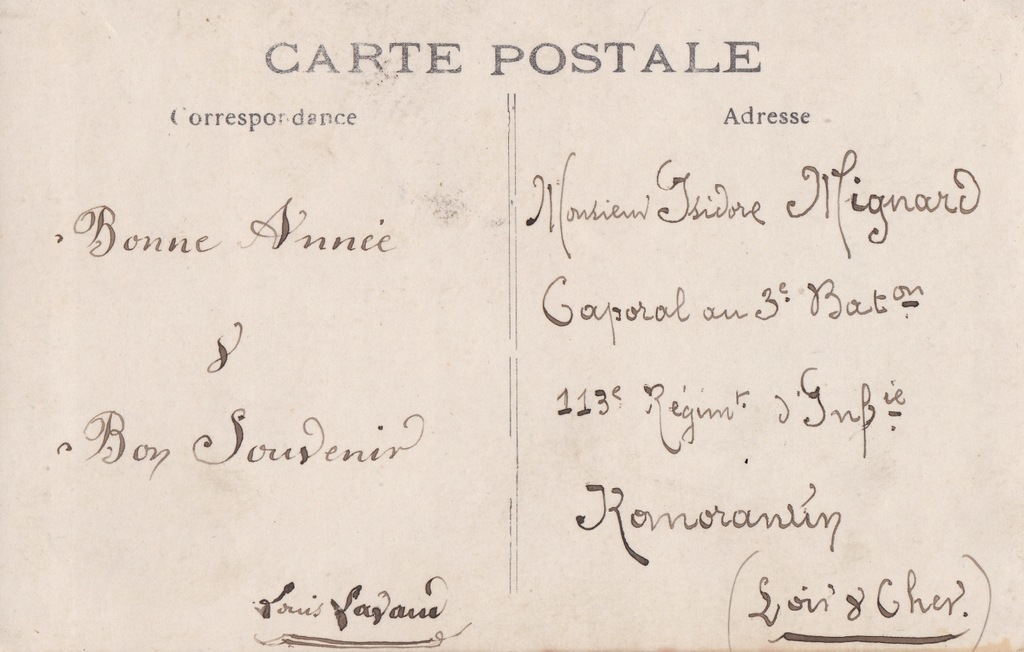 CARTE POSTALE
Correspondance
Bonne Année
&
Bon Souvenir
Louis Lavaud
Adresse
Monsieur Isidore Mignard
Caporal au 3e. Baton
113e Régimt. d'Infie
Romorantin
(Loir & Cher.)